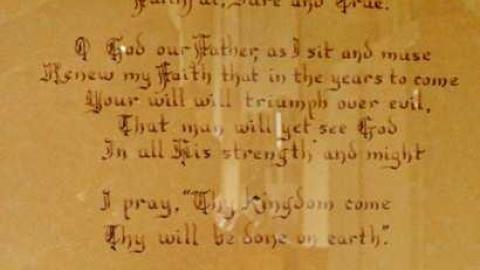 Faithful, Sure and True.
O God our Father, as I sit and muse
Renew my Faith that in the years to come
Your will will triumph over evil,
That man will yet see God
In all His strength and might
I pray, "Thy Kingdom come
Thy will be done on earth".